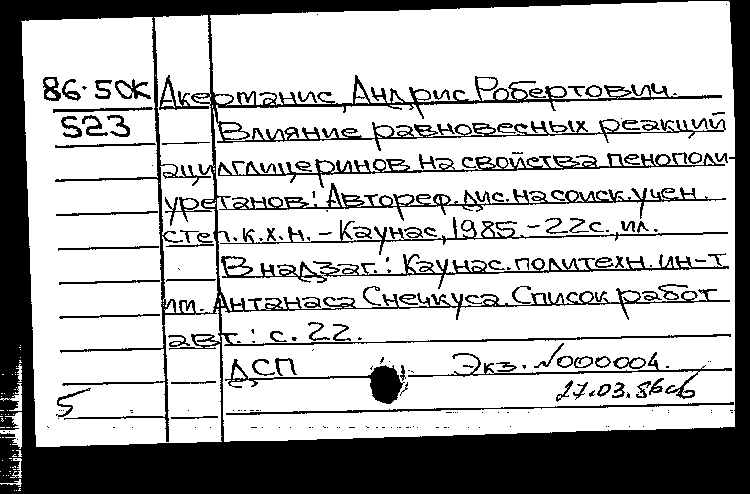 86-50К Акерманис, Андрис Робертович.
523 Влияние равновесных реакций
ацилглицеринов на свойства пенополи-
уретанов: Автореф. дис. на соиск. учен.
степ. к.х.н. - Каунас, 1985. - 22с., ил.
В надзаг.: Каунас. политехн. ин-т
им. Антанаса Снечкуса. Список работ
авт.: с. 22.
ДСП Экз. N000004.
5 27.03.86